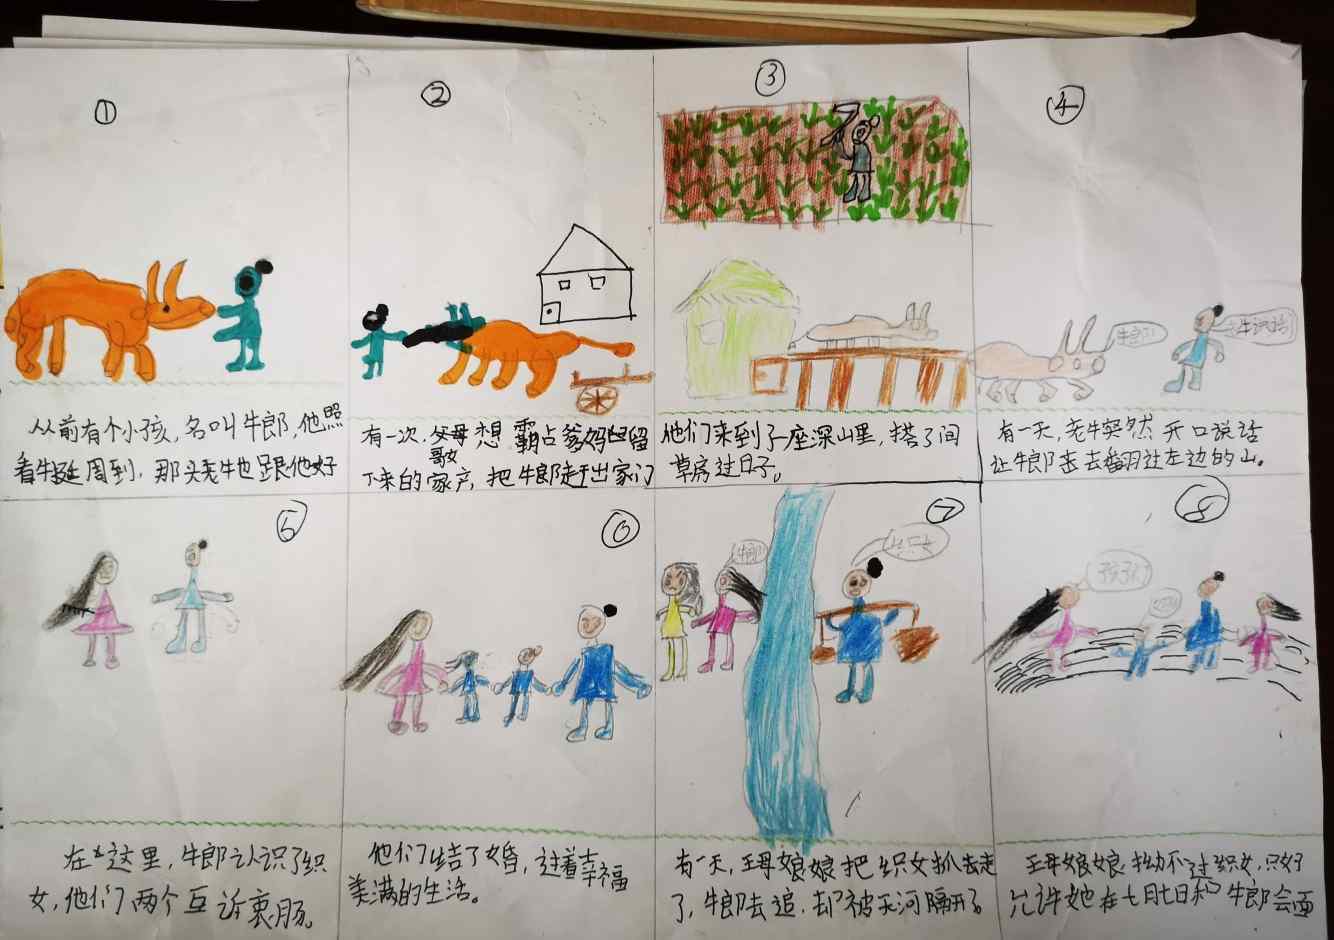 ①
从前有个小孩,名叫牛郎,他照
看牛挺周到,那头老牛也跟他好
②
有一次,父母想霸占爹妈留
哥女
下来的家产,把牛郎赶出家门
③
他们来到了一座深山里,搭了间
草房过日子。
④
牛郎
有一天,老牛突然开口说话
让牛郎去翻过左边的山。
⑤
在这里,牛郎认识了织
女,他们两个互诉衷肠。
⑥
他们结了婚,过着幸福
美满的生活。
⑦
牛郎
织女
有一天,王母娘娘把织女抓走
了,牛郎去追,却被天河隔开了。
⑧
孩子们
王母娘娘拗不过织女,只好
允许她在七月七日和牛郎会面